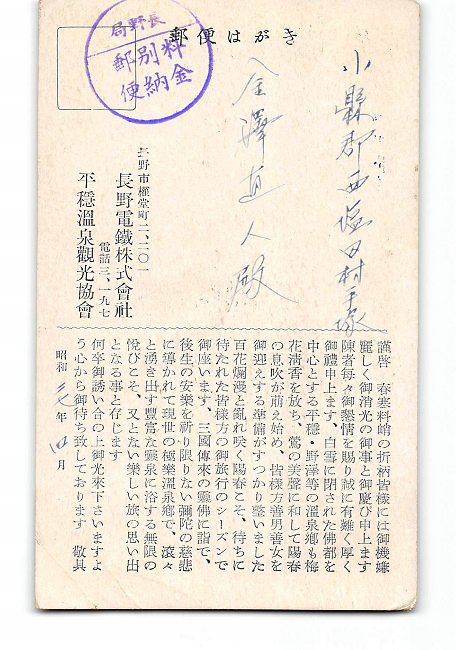 郵便はがき
長野局
料金別納
郵便
小縣郡西塩田村手塚
金澤直人殿
長野市權堂町二、二〇一
長野電鐵株式會社
電話三、一九七
平穩溫泉觀光協會
謹啓 春寒料峭の折柄皆樣には御機嫌
麗しく御消光の御事と御慶び申上ます
陳者每々御懇情を賜り誠に有難く厚く
御禮申上ます、白雪に閉された佛都を
中心とする平穩・野澤等の溫泉鄕も梅
花淸香を放ち、鶯の美聲に和して陽春
の息吹が萠え始め、皆樣方善男善女を
御迎えする準備がすつかり整いました
百花爛漫と亂れ咲く陽春こそ、待ちに
待たれた皆樣方の御旅行のシーズンで
御座います、三國傳來の靈佛に詣で、
後生の安樂を祈り限りない彌陀の慈悲
に導かれて現世の極樂溫泉鄕で、滾々
と湧き出す豐富な靈泉に浴する無限の
悅びこそ、又とない樂しい旅の思い出
となる事と存じます
何卒御誘い合の上御光來下さいますよ
う心から御待ち致しております 敬具
昭和二七年四月